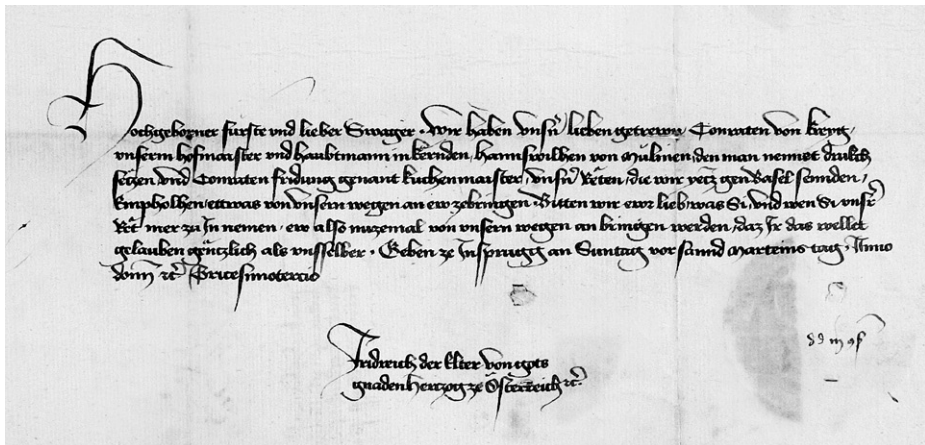 Hochgeborner fürste vnd lieber Swager · Wir haben vnsrn lieben getrewn Conraten von Kreyg,
vnserm hofmaister vnd haubtmann in kernden, Hannswilhen von Mülinen, den man nennet
setzen, vnd Conraten fridung genant kuchenmaister, vnsrn Reten, die wir yetz gen Basel sennden,
Empholhen, ettwas von vnsern wegen an ew zebringen · Bitten wir ewr lieb, was Si, vnd wen Si vnsrr
Rët mer zu In nemen, ew also nuzemal von vnsern wegen an bringen werden, daz Ir das wellet
gelauben gëntzlich als vnsselber · Geben ze Insprugg an Suntag vor sannd Marteins tag · Anno
domini etc Tricesimotercio
Fridreich der Elter von gots
gnaden hertzog ze Österreich etc